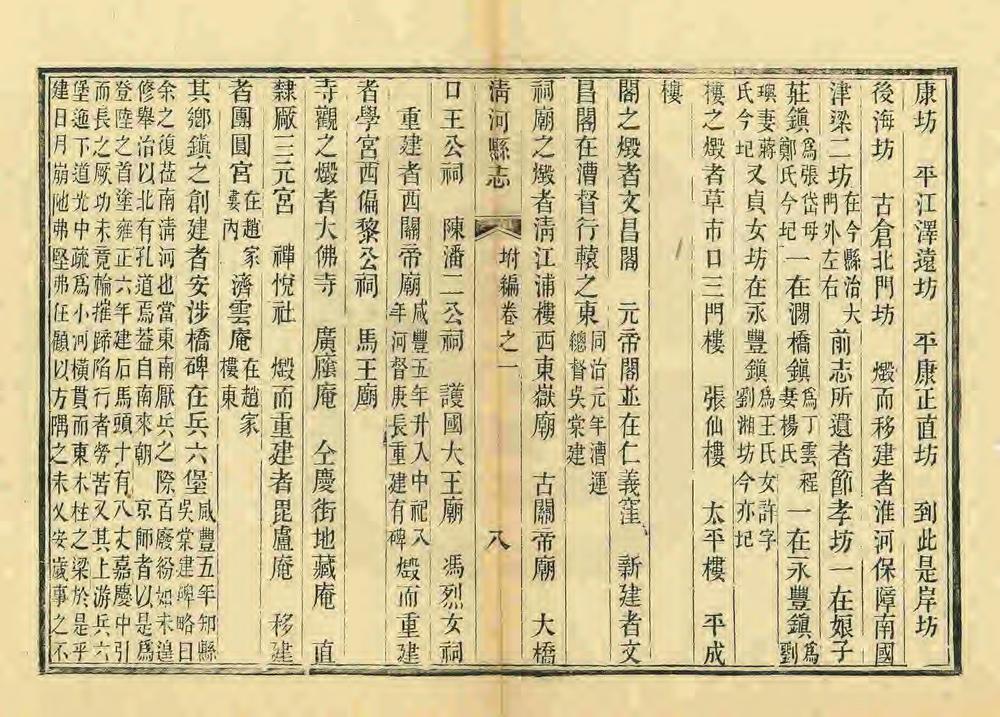 康坊　平江澤遠坊　平康正直坊　到此是岸坊
後海坊　古倉北門坊　燬而移建者淮河保障南國
津梁二坊在今縣治大門外左右　前志所遺者節孝坊一在娘子
莊鎮為張岱母鄭氏今圮　一在澗橋鎮為丁雲程妻楊氏　一在永豐鎮為劉
璵妻蔣氏今圮　又貞女坊在永豐鎮為王氏女許字劉湘坊今亦圮
樓之燬者草市口三門樓　張仙樓　太平樓　平成
樓
閣之燬者文昌閣　元帝閣並在仁義窪　新建者文
昌閣在漕督行轅之東同治元年漕運總督吳棠建
祠廟之燬者清江浦樓西東嶽廟　古關帝廟　大橋
清河縣志　坿編卷之一　八
口王公祠　陳潘二公祠　護國大王廟　馮烈女祠
重建者西關帝廟咸豐五年升入中祀又年河督庚長重建有碑　燬而重建
者學宮西偏黎公祠　馬王廟
寺觀之燬者大佛寺　廣廕庵　仝慶街地藏庵　直
隸厰三元宮　禪悅社　燬而重建者毘盧庵　移建
者團圓宮在趙家婁內　濟雲庵在趙家樓東
其鄉鎮之創建者安涉橋碑在兵六堡咸豐五年知縣吳棠建碑略曰
余之復莅南清河也當東南厭兵之際百廢紛如未遑
修舉治以北有孔道焉葢自南來朝　京師者以是為
登陸之首塗雍正六年建石馬頭十有八丈嘉慶中引
而長之厥功未竟輪摧蹄陷行者勞苦又其上游兵六
堡迤下道光中疏為小河橫貫而東木柱之梁於是乎
建日月崩阤弗堅弗任顧以方隅之未乂安歲事之不